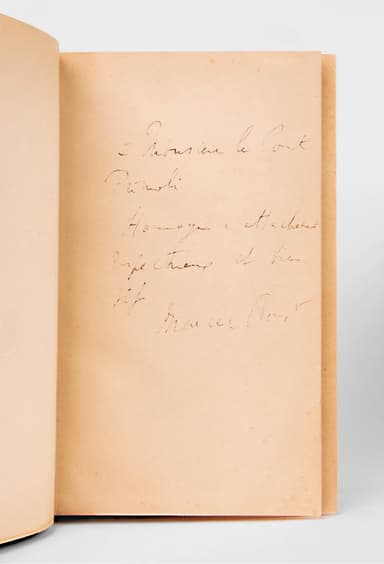 à Monsieur le Comte
Primoli
Hommage d'attachement
respectueux et bien
vif
Marcel Proust